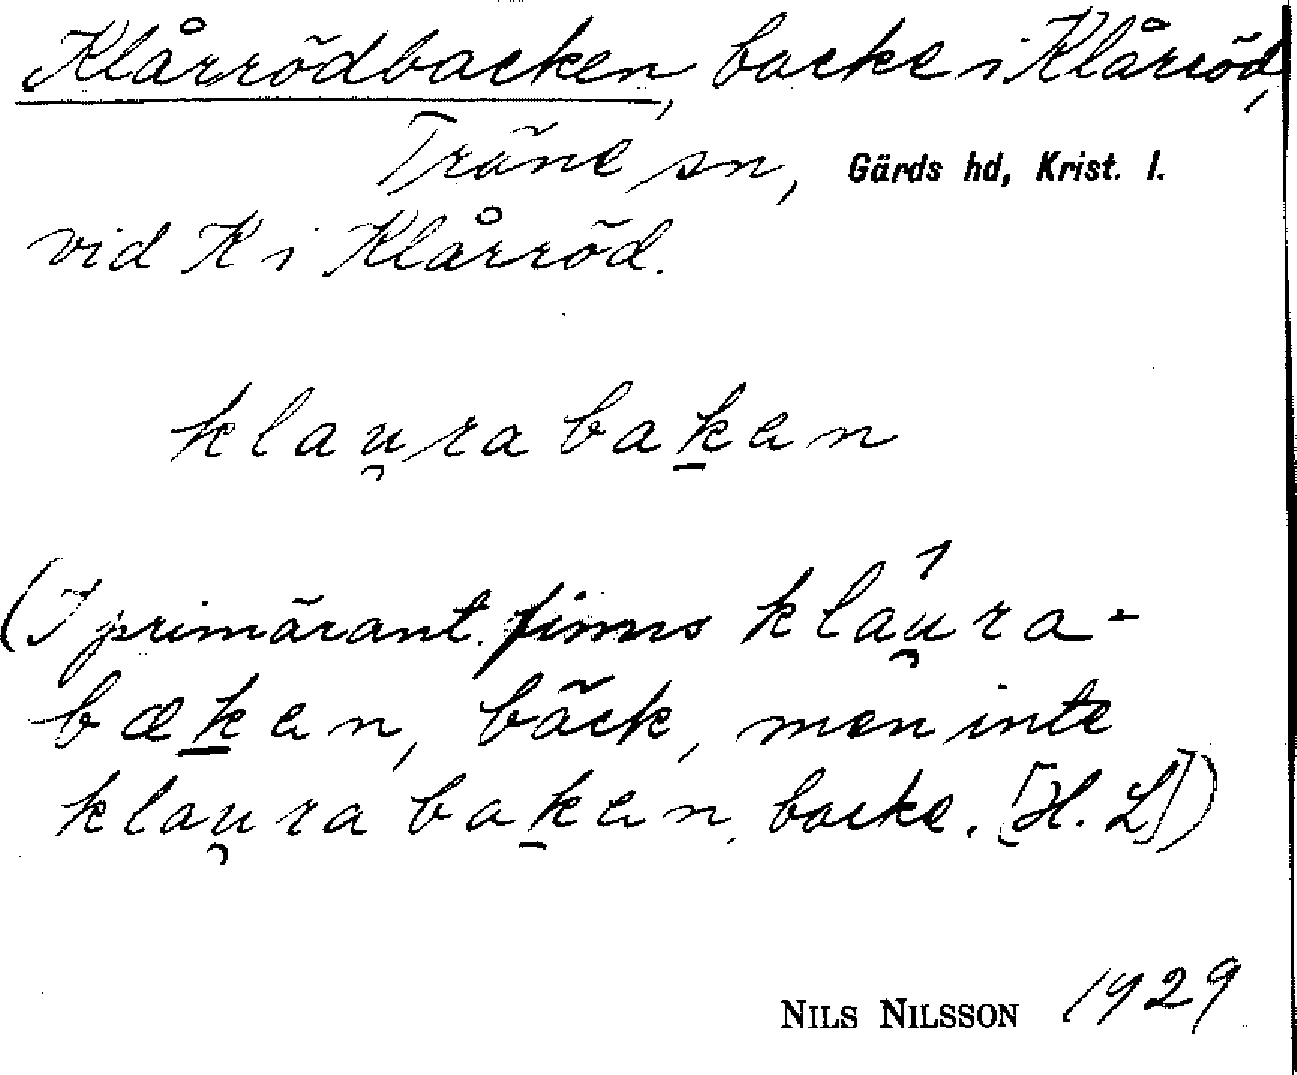 Klårrödbacken, backe i Klårröd,
Träne sn, Gärds hd, Krist. l.
vid K i Klårröd.
klau̯rabak̲en
(I primärant. finns kláu̯ra-
bæk̲en, bäck, men inte
klau̯rabak̲en, backe. [H. L])
NILS NILSSON 1929